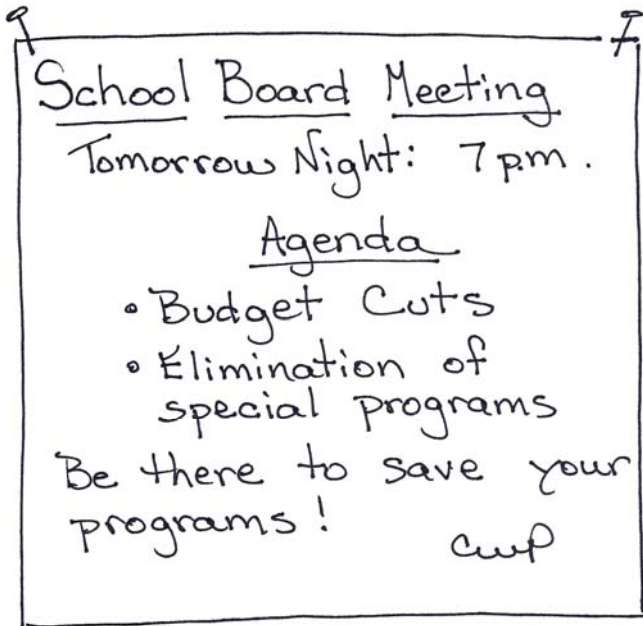 School Board Meeting
Tomorrow Night: 7 p.m.
Agenda
• Budget Cuts
• Elimination of
special programs
Be there to save your
programs!
cwp